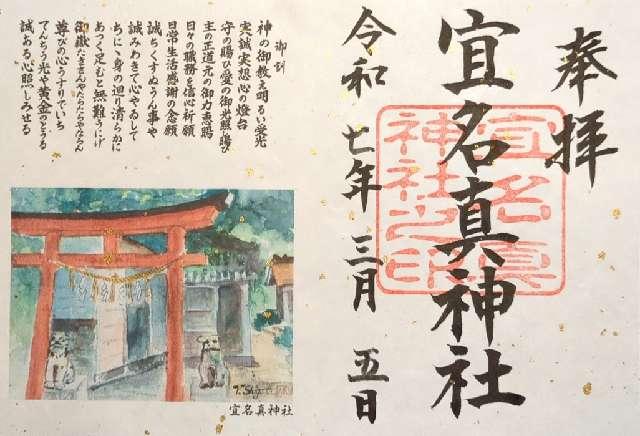 奉拝
宜名真神社
宜名真
神社之印
令和七年三月五日
御訓
神の御教え明るい愛光
実誠実想心の燈台
守の賜ひ愛の御光照し賜ひ
主の正道元の御力恵賜
日々の職務を信心祈願
日常生活感謝の念願
誠ちくすぬうん事や
誠みわきて心やゐして
ちにゝ身の廻り清らかに
あつく足むと無難うにげ
尊びの心うすりでいち
てんちぅ光や黄金のとぅる
誠ある心照しみせる
宜名真神社